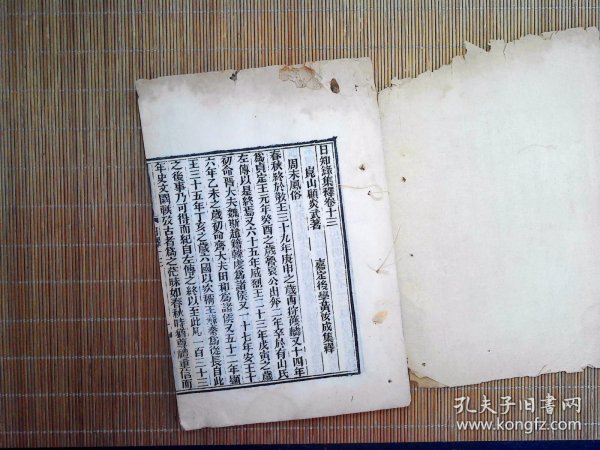 日知錄集釋卷十三
崑山顧炎武著　嘉定後學黃汝成集釋
周末風俗
春秋終於敬王三十九年庚申之歲西狩獲麟又十四年
為貞定王元年癸酉之歲魯哀公出奔二年卒於有山氏
左傳以是終焉又六十五年威烈王二十三年戊寅之歲
初命晉大夫魏斯趙籍韓虔為諸侯又一十七年安王十
六年乙未之歲初命齊大夫田和為諸侯又五十二年顯
王三十五年丁亥之歲六國以次稱王蘇秦為從長自此
之後事乃可得而紀自左傳之終以至此凡一百三十三
年史文闕軼攷古者為之茫昧如春秋時猶尊禮重信而
孔夫子旧書网
www.kongfz.com